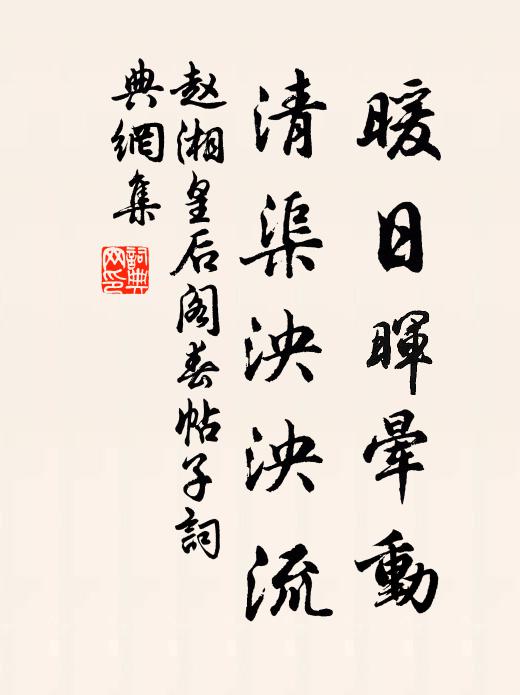 暖日暉暈動
清渠泱泱流
赵湘皇后阁春帖子詞
典網集
詞典网印